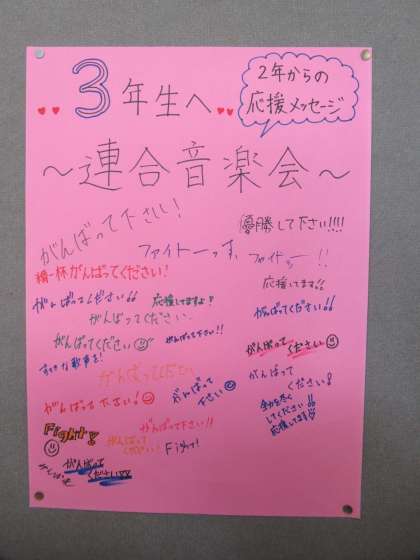 3年生へ
2年からの
応援メッセージ
～連合音楽会～
がんばって下さい!
優勝して下さい!!!!
ファイトーっす、
ファイトッー!!
精一杯がんばってください!
応援してます!!
がんばってください!!
応援してますよ?
がんばってください!!
がんばってください.
がんばってください
がんばって下さい!!
がんばって
ください
すてきな歌声を!
がんばって
ください!
がんばって
下さい
がんばって下さい!
全力を尽くし
てください!!
応援してます
Fight!
がんばって下さい!!
がんばって
ください!
Fight!
がんばって
ください!!